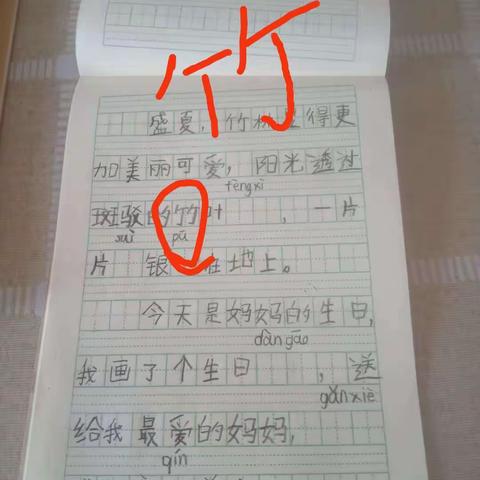 竹
盛夏，竹林显得更
加美丽可爱，阳光透过
fēngxì
斑驳的竹叶，一片
suì pū
片银在地上。
今天是妈妈的生日，
dàngāo
我画了个生日，送
gǎnxiè
给我最爱的妈妈，
qín